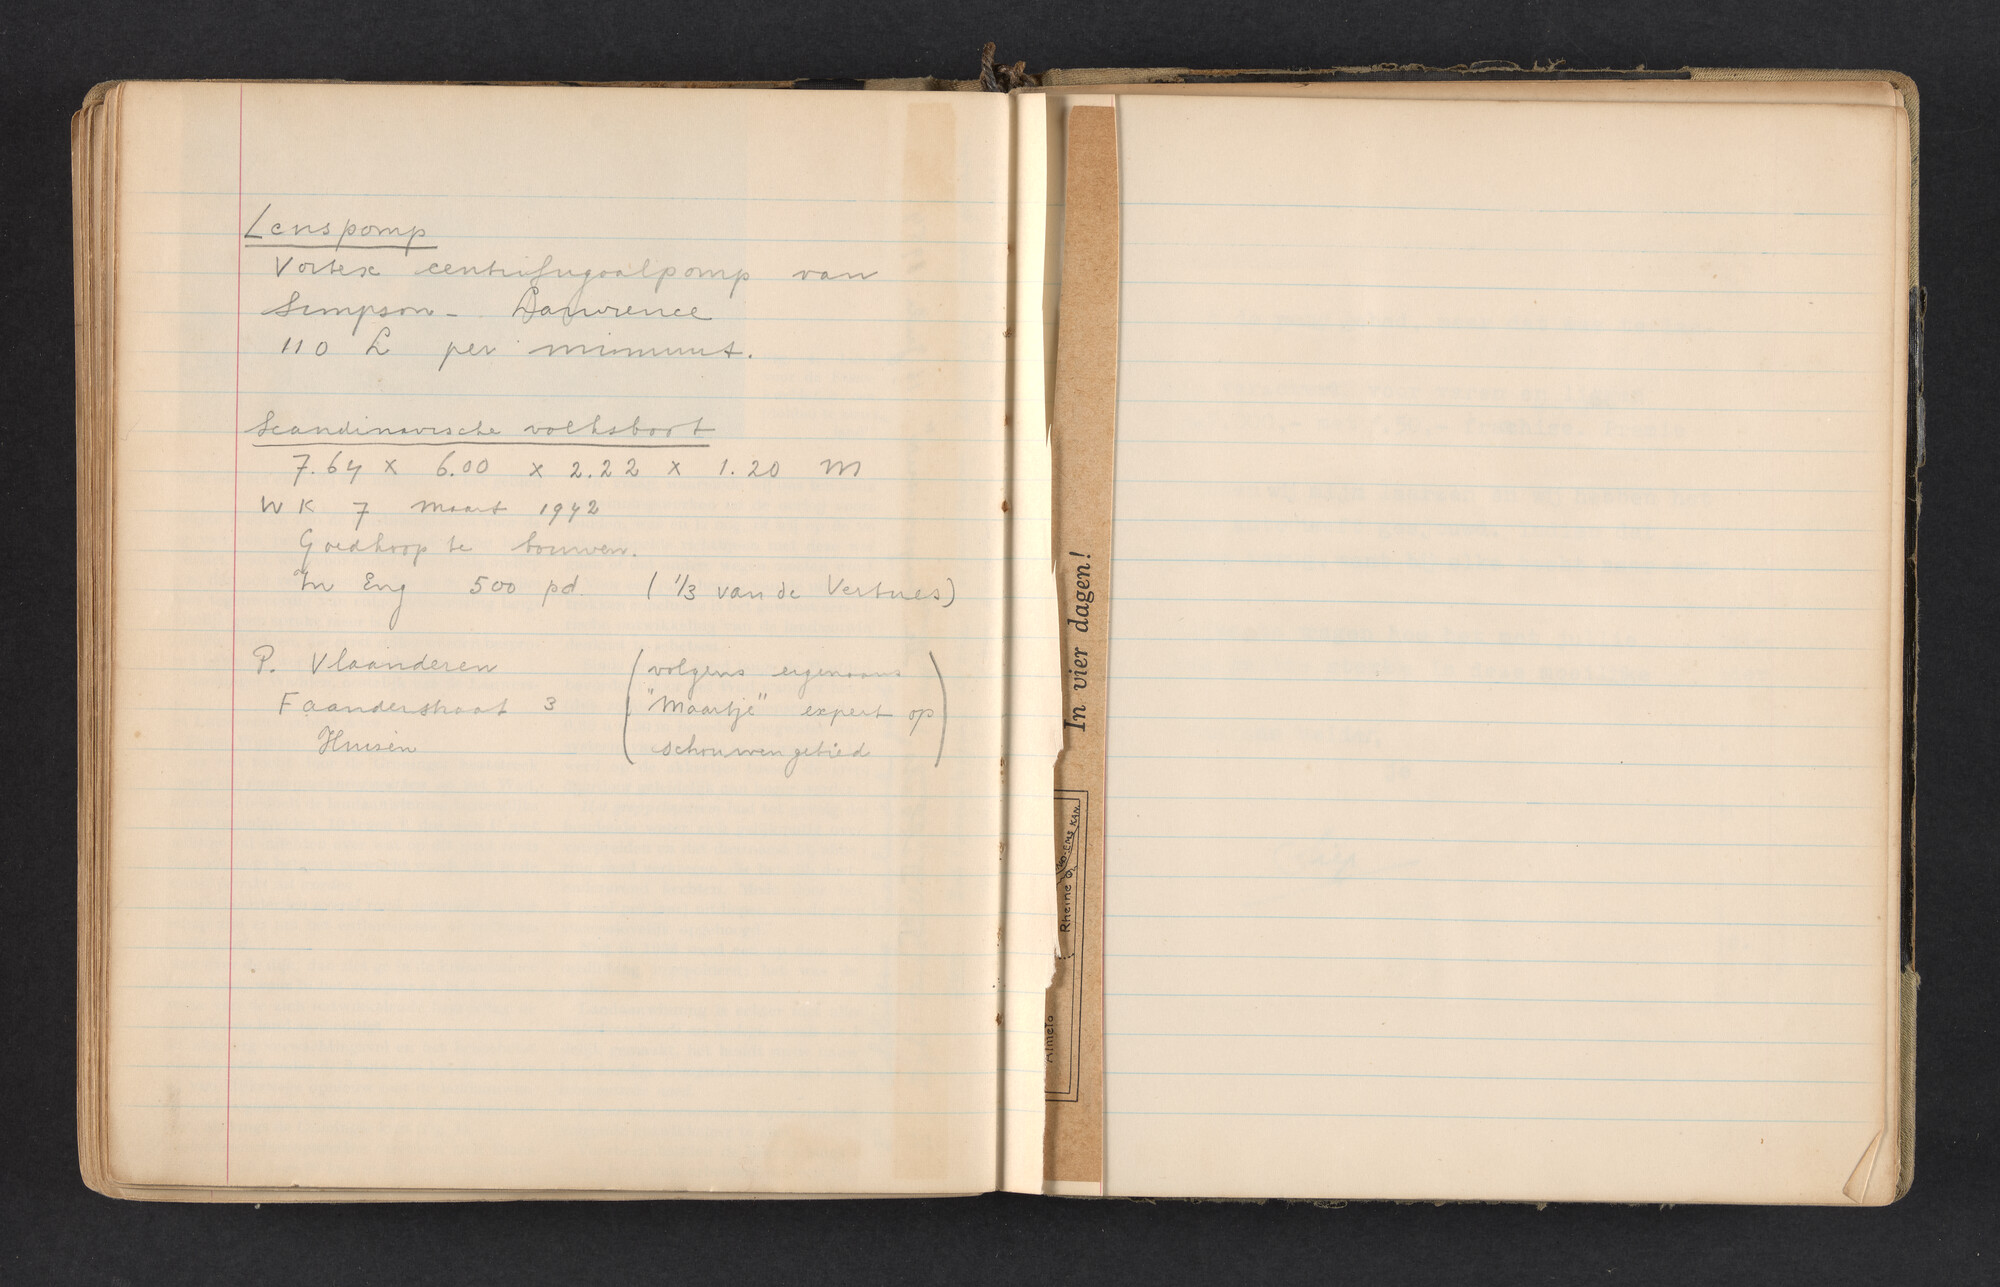 Lenspomp
Vortex centrifugaalpomp van
Simpson - Lawrence
110 L per minuut.
Scandinavische volksboot
7.64 x 6.00 x 2.22 x 1.20 m
WK 7 Maart 1942
Goedkoop te bouwen.
In Eng 500 pd. (1/3 van de Vertues)
P. Vlaanderen (volgens eigenaars
Faanderstraat 3 "Maartje" expert op
Huisen schouwengebied)
In vier dagen!
Rheine
EMS KAN.
Almelo